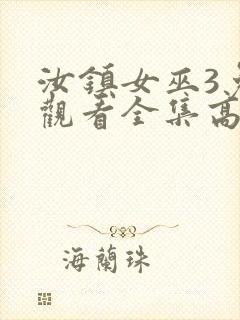 汝鎮女巫3
觀看全集高
海蘭珠